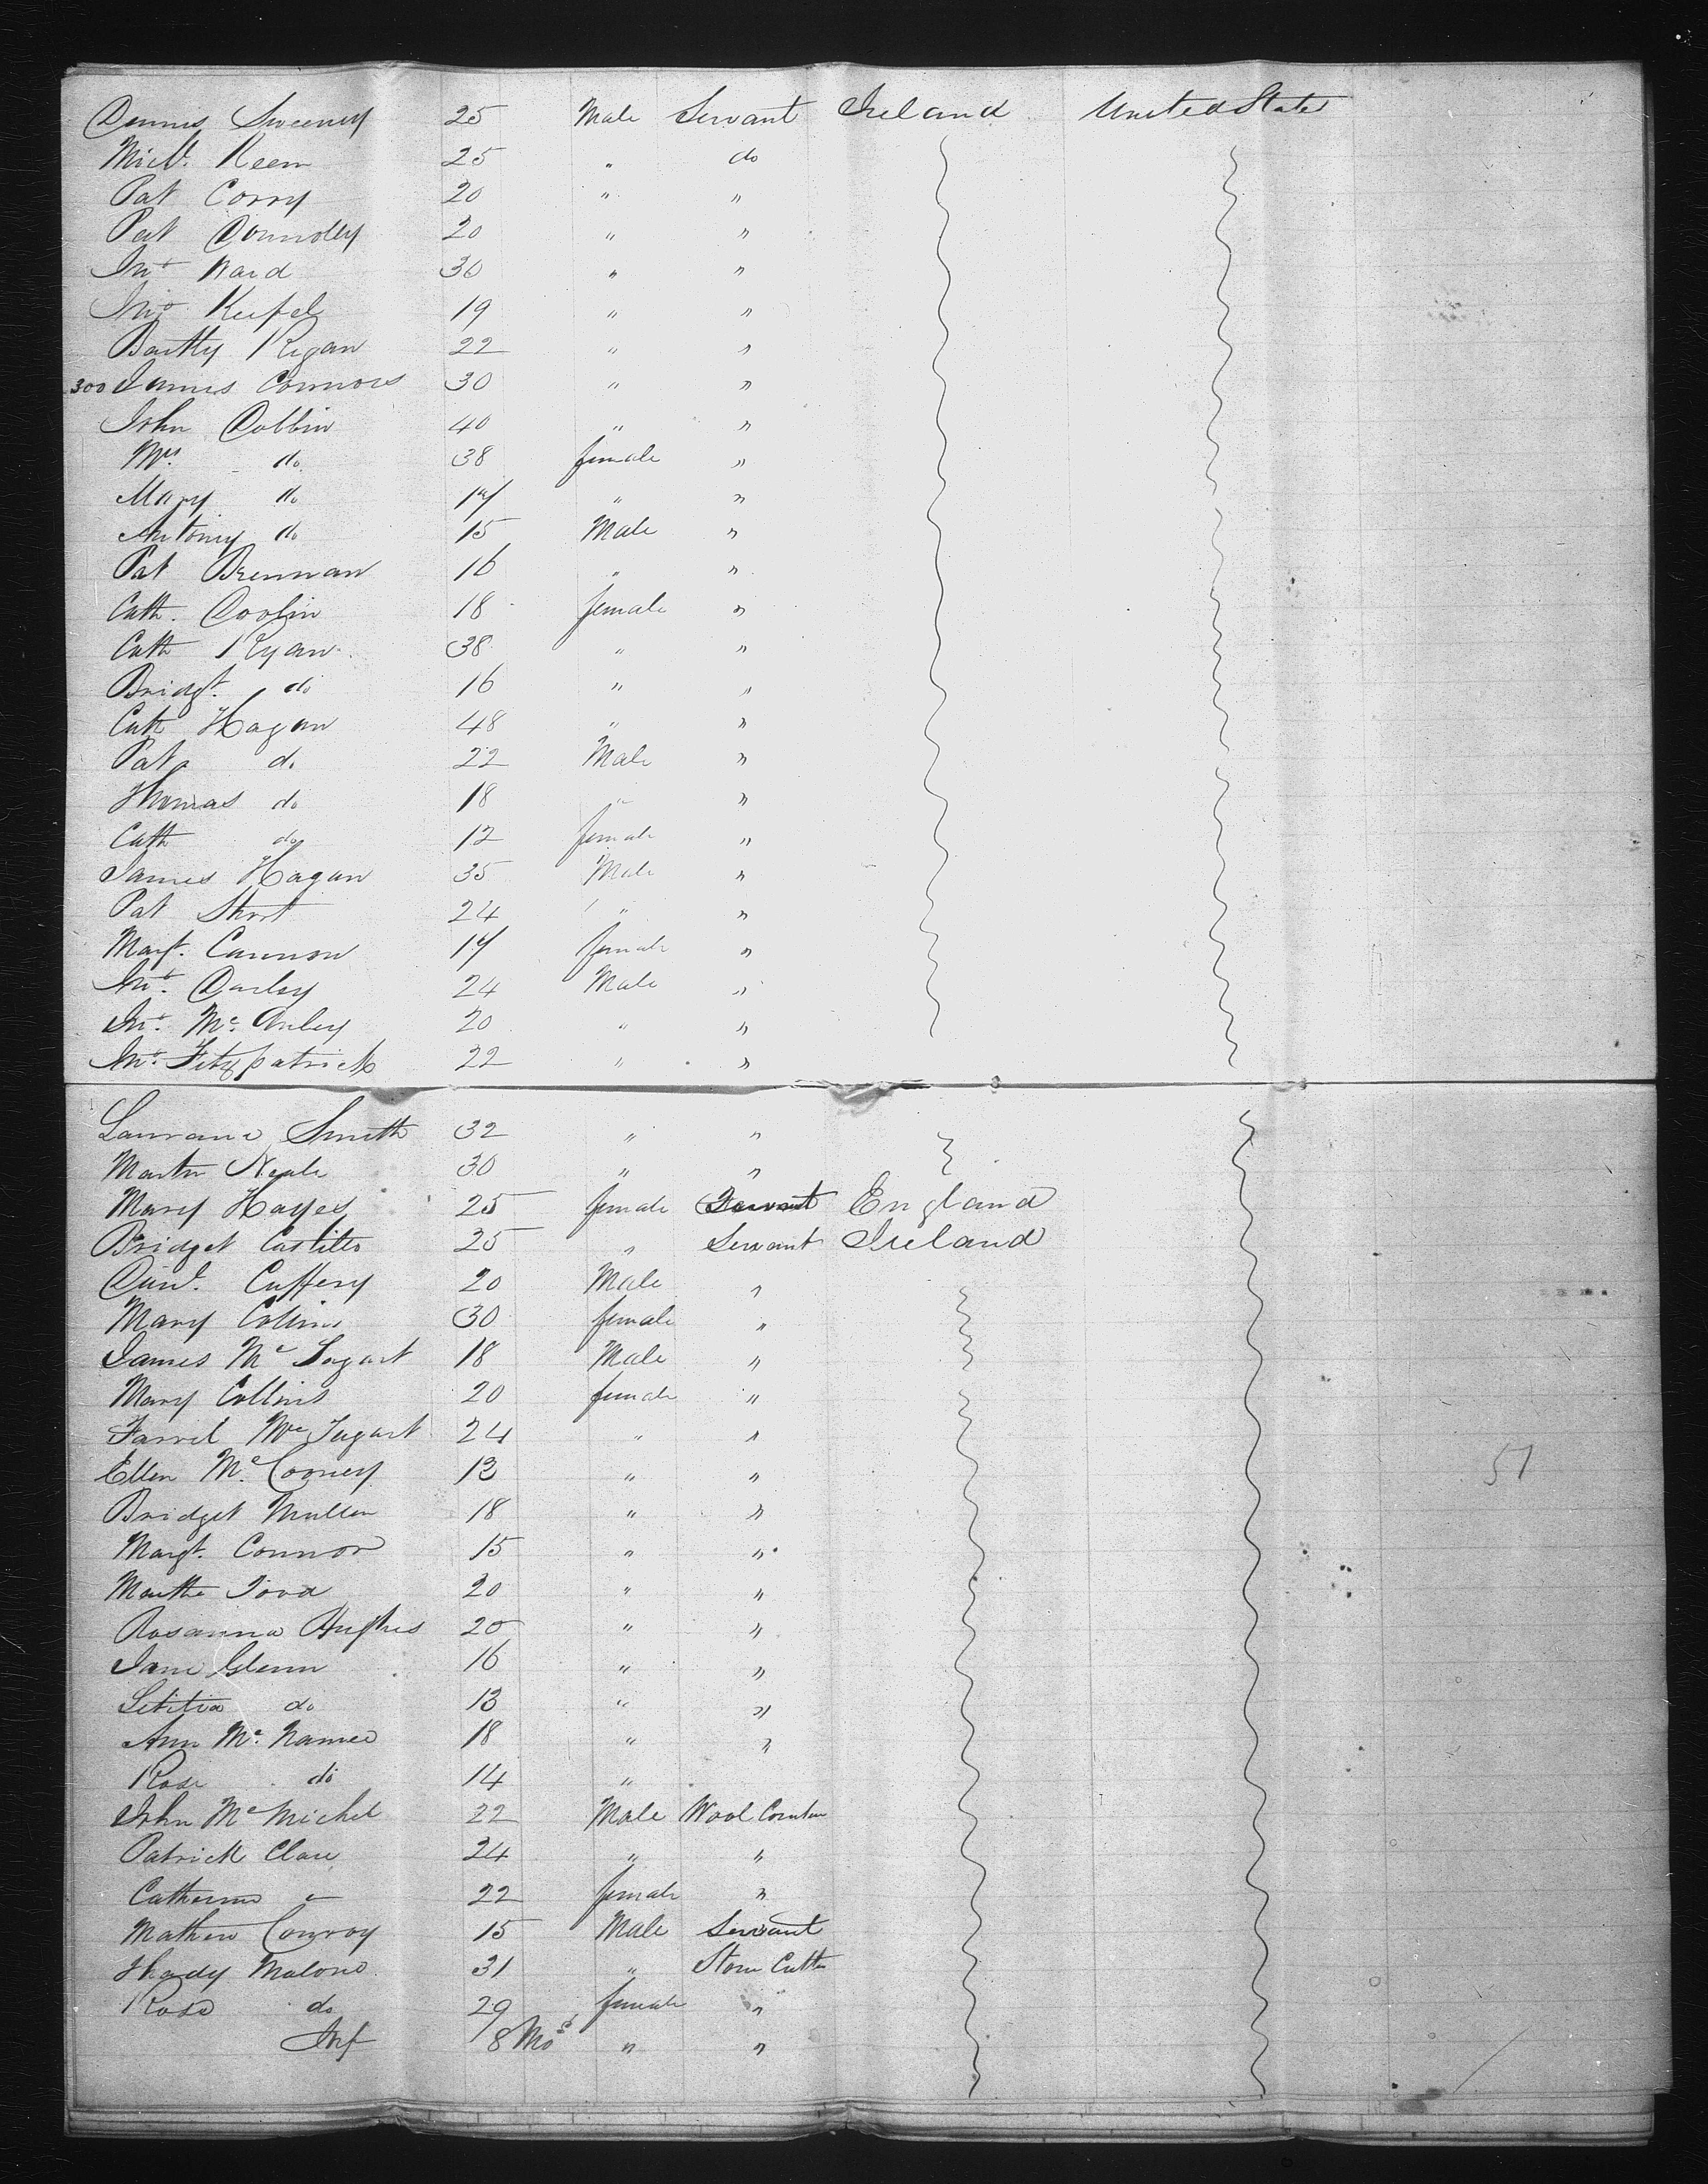 Dennis Sweeney 25 Male Servant Ireland United State
Michl. Keen 25 " do
Pat Corry 20 " "
Pat Connolly 20 " "
Jno Ward 30 " "
Jno Keefel 19 " "
Bartly Regan 22 " "
300 James Connors 30 " "
John Dobbin 40 " "
Mrs. do 38 female "
Mary do 17 " "
Antony do 15 Male "
Pat Brennan 16 " "
Cath. Doolin 18 female "
Cath Ryan 38 " "
Bridgt. do 16 " "
Cath Hagan 48 " "
Pat do 22 Male "
Thomas do 18 " "
Cath do 12 female "
James Hagan 35 Male "
Pat Short 24 " "
Margt. Cannon 17 female "
Jno. Darley 24 Male "
Jno. Mc Anley 20 " "
Jno. Fitzpatrick 22 " "
Lawrance Smith 32 " "
Martin Neale 30 " "
Mary Hayes 25 female Servant England
Bridget Castillo 25 " Servant Ireland
Danl. Cuffery 20 Male "
Mary Collins 30 female "
James Mc Tagart 18 Male "
Mary Collins 20 female "
Farrel Mc Tagart 24 " "
Ellen Mc. Cooney 13 " "
Bridget Mullen 18 " "
Margt. Connor 15 " "
Martha Todd 20 " "
Rosanna Hughes 20 " "
Jane Glenn 16 " "
Letitia do 13 " "
Ann Mc. Namee 18 " "
Rose do 14 "
John Mc Michel 22 Male Wool
Patrick Clare 24 " "
Catherine " 22 female "
Mathew Conroy 15 Male Servant
Thady Malone 31 " Stone Cutter
Rose do 29 female "
Inf 8 Mos " "
51